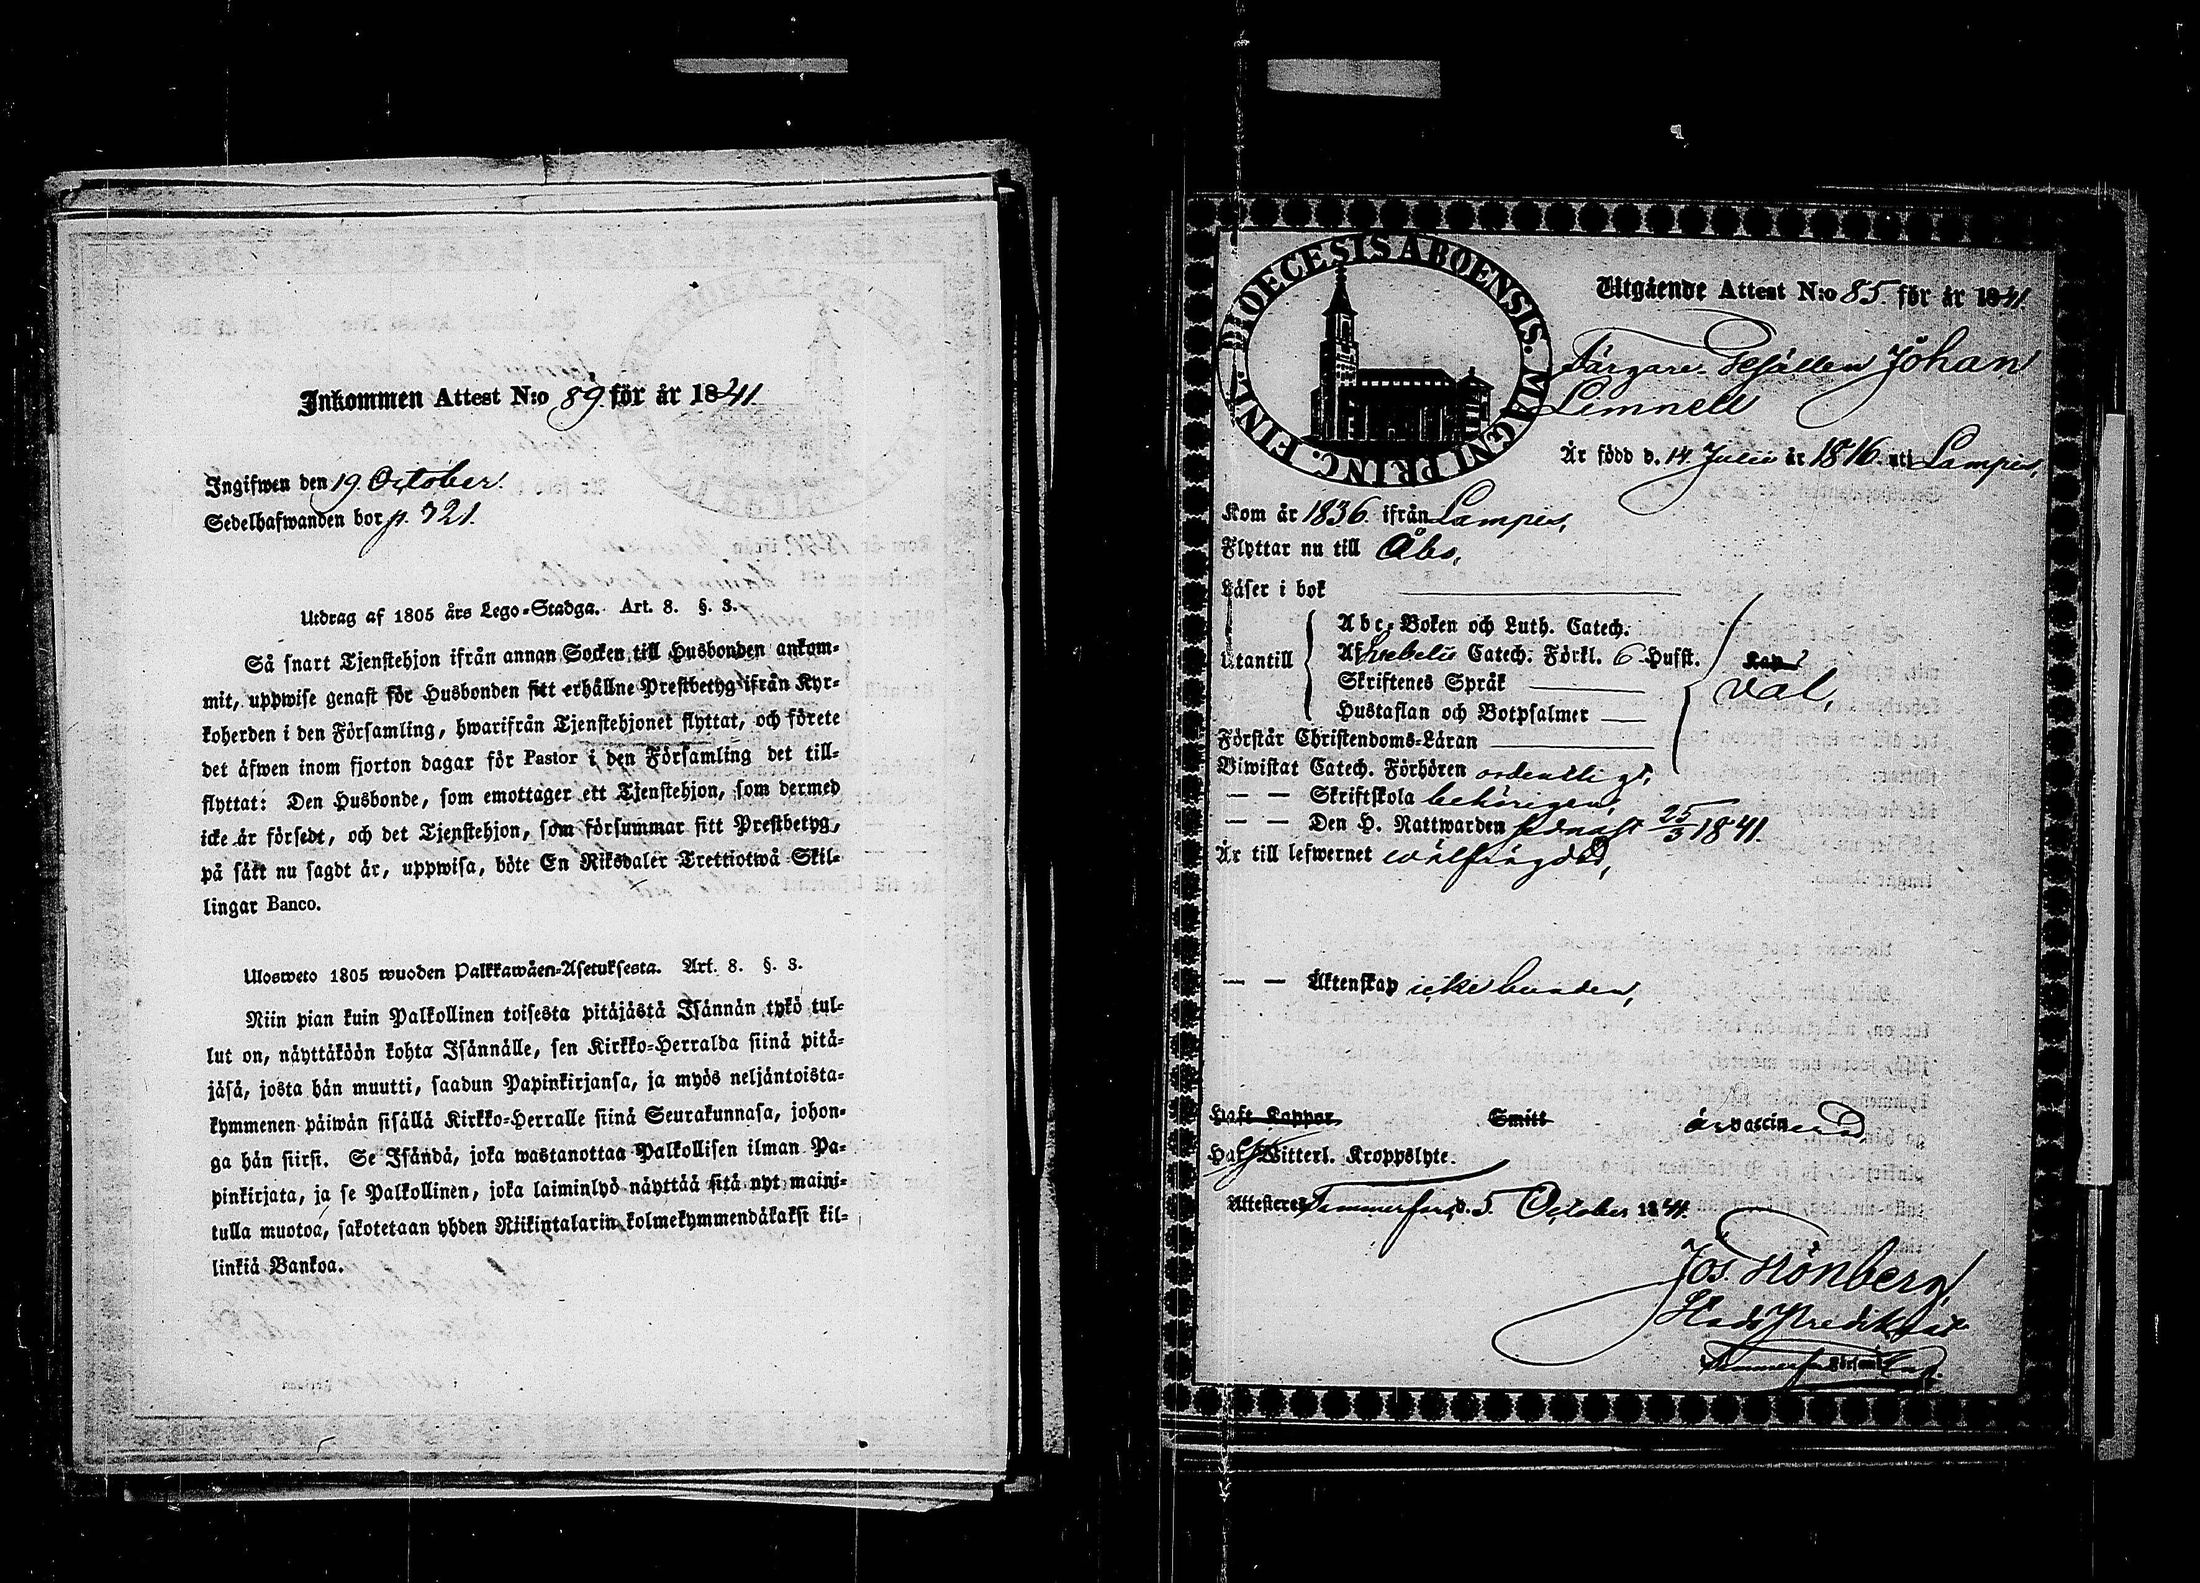 Inkommen Attest N:o 89 för år 1841.
Ingifwen den 19 October.
Sedelhafwanden bor p. 321.
Utdrag af 1805 års Lego-Stadga. Art. 8. §. 3.
Så snart Tjenstehjon ifrån annan Socken till Husbonden ankom-
mit, uppwise genast för Husbonden sitt erhållne Prestbetyg ifrån Kyr-
koherden i den Församling, hwarifrån Tjenstehjonet flyttat, och förete
det äfwen inom fjorton dagar för Pastor i den Församling det till-
flyttat: Den Husbonde, som emottager ett Tjenstehjon, som dermed
icke är försedt, och det Tjenstehjon, som försummar sitt Prestbetyg,
på sätt nu sagdt är, uppwisa, böte En Riksdaler Trettiotwå Skil-
lingar Banco.
Ulosweto 1805 wuoden Palkkawäen-Asetuksesta. Art. 8. §. 3.
Niin pian kuin Palkollinen toisesta pitäjästä Isännän tykö tul-
lut on, näyttäköön kohta Isännälle, sen Kirkko-Herralda siinä pitä-
jäsä, josta hän muutti, saadun Papinkirjansa, ja myös neljäntoista-
kymmenen päiwän sisällä Kirkko-Herralle siinä Seurakunnasa, johon-
ga hän siirsi. Se Isändä, joka wastanottaa Palkollisen ilman Pa-
pinkirjata, ja se Palkollinen, joka laiminlyö näyttää sitä nyt maini-
tulla muotoa, sakotetaan yhden Riikintalarin kolmekymmendäkaksi kil-
linkiä Bankoa.
DIOECESIS ABOENSIS. MAGNI PRINC. FINL.
Utgående Attest N:o 85 för år 1841.
Färgare Gesällen Johan
Limnell
Är född d. 14 Julii år 1816 uti Lampis,
Kom år 1836 ifrån Lampis,
Flyttar nu till Åbo,
Läser i bok
Utantill
Abc-Boken och Luth. Catech.
Af Svebelii Catech. Förkl. 6 Hufst.
Skriftenes Språk
Hustaflan och Botpsalmer
val,
Förstår Christendoms-Läran
Biwistat Catech. Förhören ordentligt,
— — Skriftskola behörigen,
— — Den H. Nattwarden sednast 25/3 1841.
Är till lefwernet wälfrägdad,
— — Äktenskap icke bunden,
Haft Koppor Smitt är vaccinerad
Haf Witterl. Kroppslyte.
Attesteres Tammerfors d. 5 October 1841.
Jos. Grönberg,
Stads Predikant